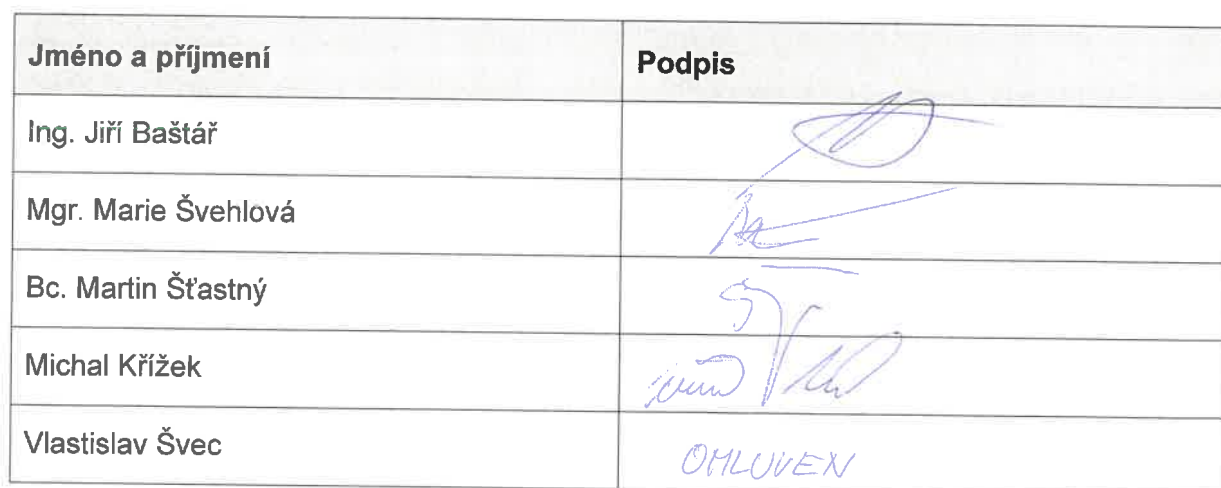 Jméno a příjmení Podpis
Ing. Jiří Baštář
Mgr. Marie Švehlová
Bc. Martin Šťastný
Michal Křížek
Vlastislav Švec OMLUVEN